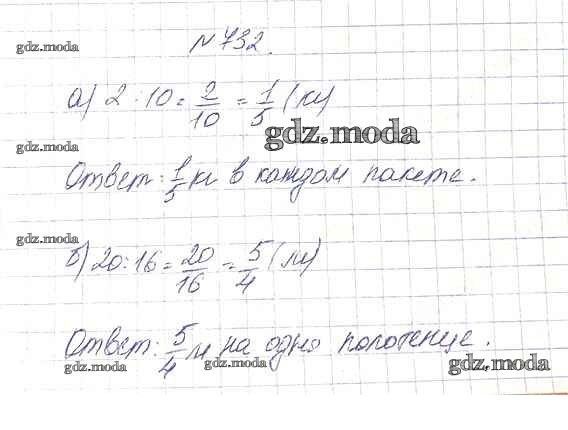 №732.
gdz.moda
а) 2 : 10 = 2/10 = 1/5 (кг)
gdz.moda
gdz.moda
Ответ: 1/5 кг в каждом пакете.
gdz.moda
б) 20 : 16 = 20/16 = 5/4 (м)
Ответ: 5/4 м на одно полотенце.
gdz.moda gdz.moda gdz.moda